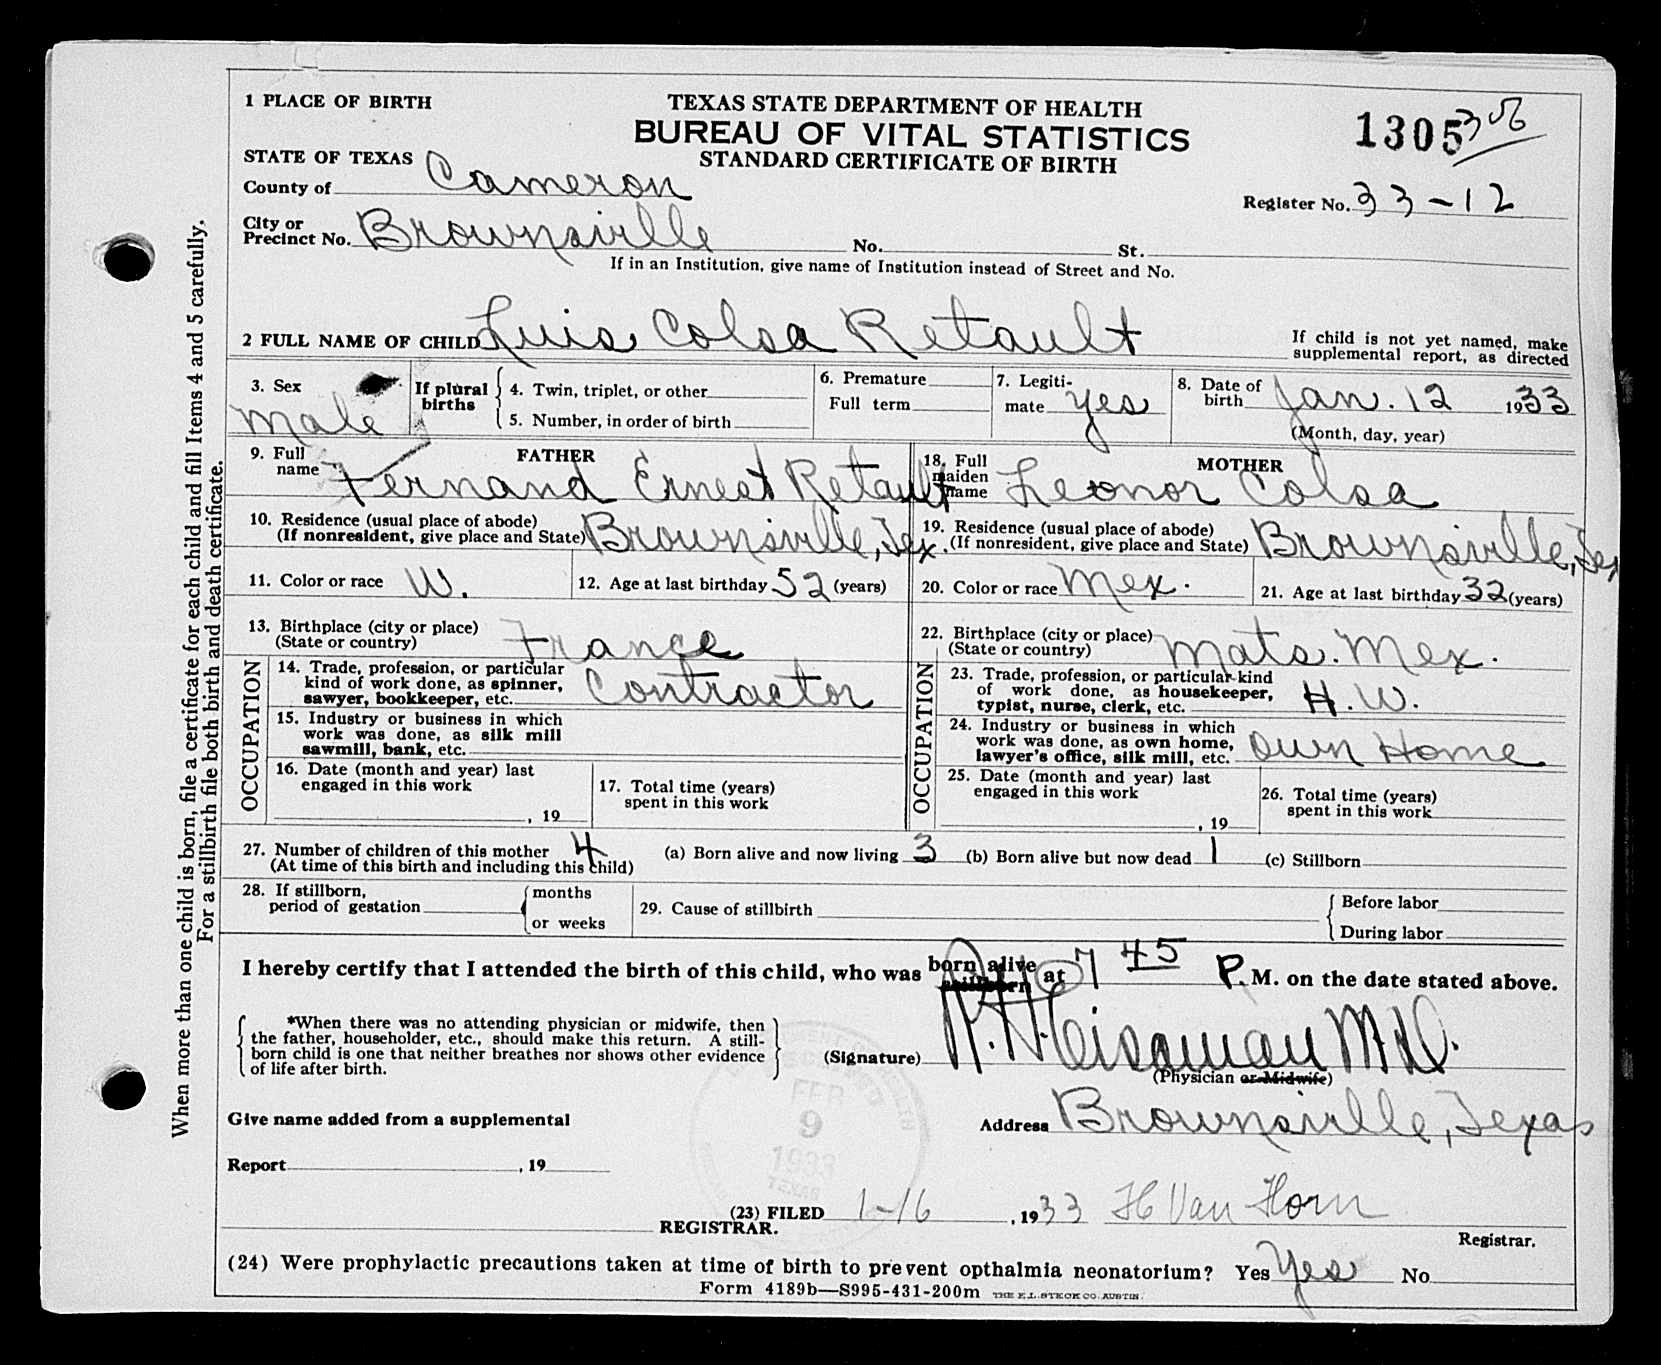 1 PLACE OF BIRTH
TEXAS STATE DEPARTMENT OF HEALTH
BUREAU OF VITAL STATISTICS
STANDARD CERTIFICATE OF BIRTH
1305
STATE OF TEXAS
County of Cameron
Register No. 33-12
City or
Precinct No. Brownsville No. St.
If in an Institution, give name of Institution instead of Street and No.
2 FULL NAME OF CHILD Luis Colsa Retault
If child is not yet named, make
supplemental report, as directed
3. Sex Male
If plural births
4. Twin, triplet, or other
5. Number, in order of birth
6. Premature
Full term
7. Legiti-
mate yes
8. Date of
birth Jan. 12 1933
(Month, day, year)
FATHER
9. Full
name Fernand Ernest Retault
10. Residence (usual place of abode)
(If nonresident, give place and State) Brownsville, Tex.
11. Color or race W.
12. Age at last birthday 52 (years)
13. Birthplace (city or place)
(State or country) France
OCCUPATION
14. Trade, profession, or particular
kind of work done, as spinner,
sawyer, bookkeeper, etc. Contractor
15. Industry or business in which
work was done, as silk mill
sawmill, bank, etc.
16. Date (month and year) last
engaged in this work
, 19
17. Total time (years)
spent in this work
MOTHER
18. Full
maiden
name Leonor Colsa
19. Residence (usual place of abode)
(If nonresident, give place and State) Brownsville, Tex
20. Color or race Mex.
21. Age at last birthday 32 (years)
22. Birthplace (city or place)
(State or country) Mata. Mex.
OCCUPATION
23. Trade, profession, or particular kind
of work done, as housekeeper,
typist, nurse, clerk, etc. H. W.
24. Industry or business in which
work was done, as own home,
lawyer's office, silk mill, etc. Own Home
25. Date (month and year) last
engaged in this work
, 19
26. Total time (years)
spent in this work
27. Number of children of this mother 4
(At time of this birth and including this child)
(a) Born alive and now living 3 (b) Born alive but now dead 1 (c) Stillborn
28. If stillborn,
period of gestation
months
or weeks
29. Cause of stillbirth
Before labor
During labor
I hereby certify that I attended the birth of this child, who was born alive stillborn at 7 45 P. M. on the date stated above.
*When there was no attending physician or midwife, then
the father, householder, etc., should make this return. A still-
born child is one that neither breathes nor shows other evidence
of life after birth.
(Signature)
M.D.
(Physician or Midwife)
Give name added from a supplemental
Address Brownsville, Texas
Report , 19
FEB
9
1933
TEXAS
(23) FILED 1-16, 1933 H Van Horn
REGISTRAR.
Registrar.
(24) Were prophylactic precautions taken at time of birth to prevent opthalmia neonatorium? Yes Yes No
Form 4189b—S995-431-200m THE E.L. STECK CO. AUSTIN.
When more than one child is born, file a certificate for each child and fill Items 4 and 5 carefully.
For a stillbirth file both birth and death certificate.